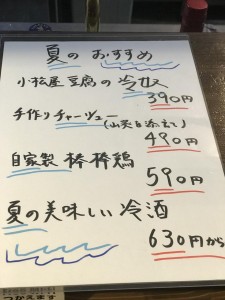 夏の おすすめ
小松屋豆腐の冷奴
390円
手作りチャーシュー
(山葵白添え)
490円
自家製 棒棒鶏
590円
夏の美味しい冷酒
630円から
つかえます